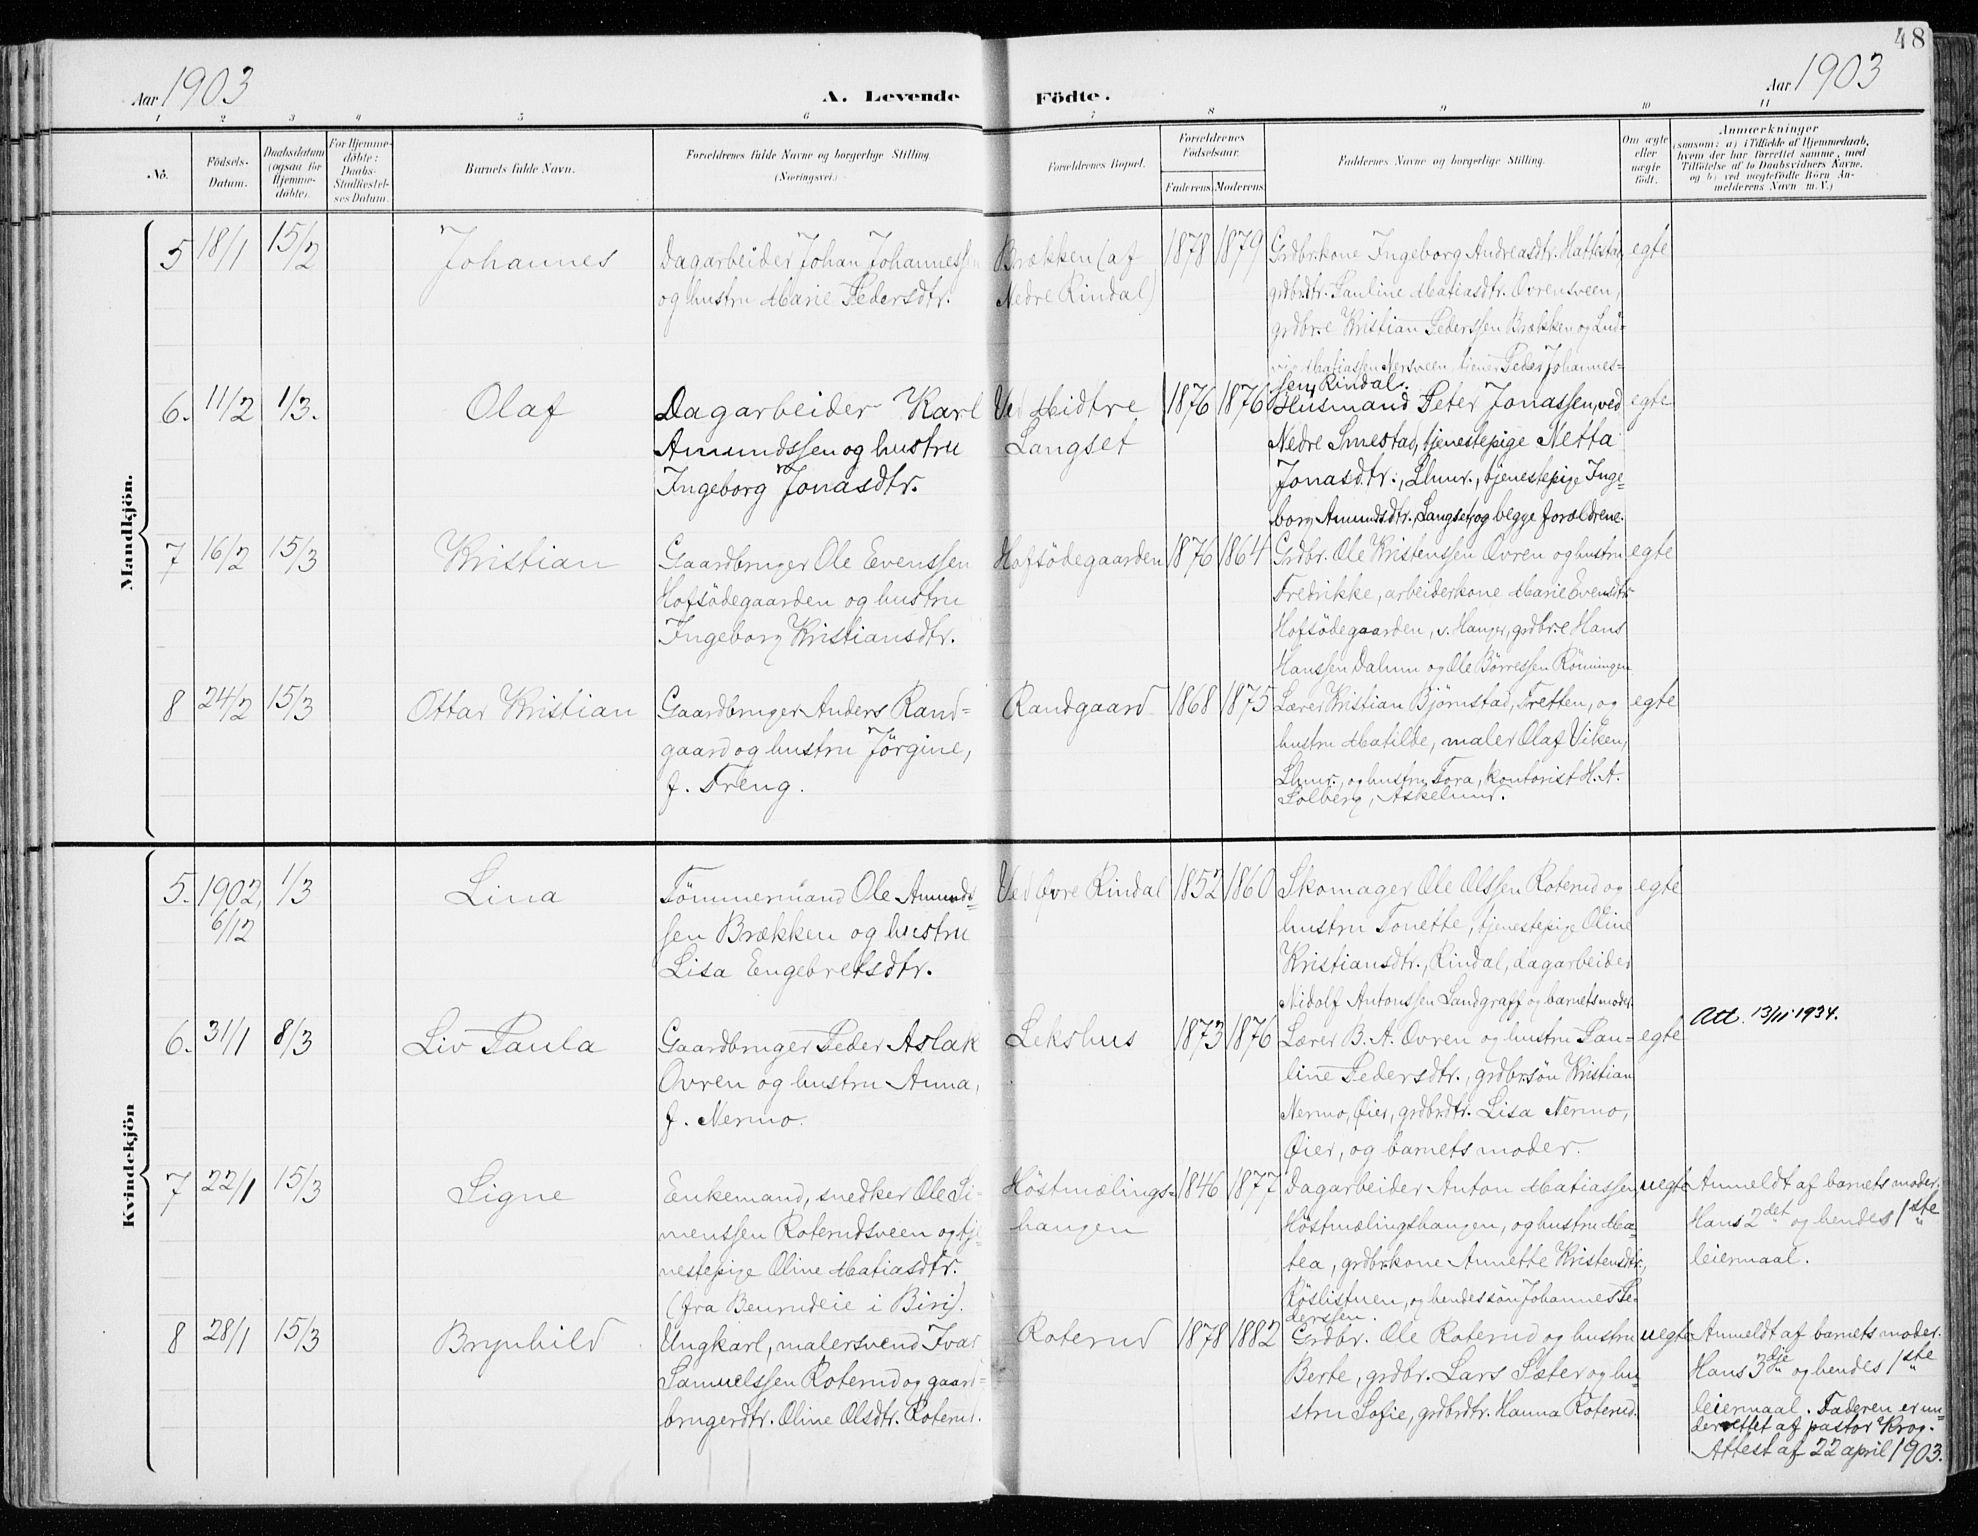 48
Aar 1903
A. Levende Födte.
Aar 1903
1 2 3 4 5 6 7 8 9 10 11
No.
Födsels-
Datum.
Daabsdatum
(ogsaa for
Hjemme-
döbte).
For Hjemme-
döbte:
Daabs-
Stadfæstel-
ses Datum.
Barnets fulde Navn.
Forældrenes fulde Navne og borgerlige Stilling
(Næringsvei.)
Forældrenes Bopæl.
Forældrenes
Födselsaar.
Faderens. Moderens.
Faddernes Navne og borgerlige Stilling.
Om ægte
eller
uægte
födt.
Anmærkninger
(saasom: a) i Tilfælde af Hjemmedaab,
hvem der har forrettet samme, med
Tilföielse af to Daabsvidners Navne,
og b) ved uægtefödte Börn An-
melderens Navn m. V.)
Mandkjön.
5 18/1 15/2
Johannes
Dagarbeider Johan Johannessen
og hustru Marie Pedersdtr.
Brækken (af
Nedre Rindal)
1878 1879
Grdbr.kone Ingeborg Andreasdtr. Hattestad,
grdbr.dtr. Pauline Matiasdtr. Ovrensveen,
grdbr.e Kristian Pederssen Brækken og Lud-
vig Matiassen Nersveen, tjener Peder Johannes-
sen, Rindal.
egte
6. 11/2 1/3.
Olaf
Dagarbeider Karl
Amundssen og hustru
Ingeborg Jonasdtr.
Ved Midtre
Langset
1876 1876
Husmand Peter Jonassen, ved
Nedre Smestad, tjenestepige Netta
Jonasdtr., Lhmr., tjenestepige Inge-
borg Amundsdtr., Langset, og begge forældrene.
egte
7 16/2 15/3
Kristian
Gaardbruger Ole Evenssen
Hofsödegaarden og hustru
Ingeborg Kristiansdtr.
Hofsödegaarden
1876 1864
Grdbr. Ole Kristenssen Ovren og hustru
Fredrikke, arbeiderkone Marie Evensdtr.
Hofsödegaarden, v. Hanger, grdbr.e Hans
Hanssen Dalum og Ole Börressen Rönningen
egte
8 24/2 15/3
Ottar Kristian
Gaardbruger Anders Rand-
gaard og hustru Jörgine,
f. Treng.
Randgaard
1868 1875
Lærer Kristian Björnstad, Tretten, og
hustru Matilde, maler Olaf Viken,
Lhmr., og hustru Tora, kontorist H. A.
Solberg, Askelund.
egte
Kvindekjön
5. 1902, 6/12 1/3
Lina
Tömmermand Ole Amunds-
sen Brækken og hustru
Lisa Engebretsdtr.
Ved Øvre Rindal
1852 1860
Skomager Ole Olssen Roterud og
hustru Tonette, tjenestepige Oline
Kristiansdtr., Rindal, dagarbeider
Nidolf Antonssen Landgraff og barnets moder.
egte
6. 31/1 8/3
Liv Paula
Gaardbruger Peder Aslak
Ovren og hustru Anna,
f. Nermo.
Lekshus
1873 1876
Lærer B. A. Ovren og hustru Pau-
line Pedersdtr., grdbr.sön Kristian
Nermo, Øier, grdbr.dtr. Lisa Nermo,
Øier, og barnets moder.
egte
Att. 13/11 1934.
7 22/1 15/3
Signe
Enkemand, snedker Ole Si-
menssen Roterudsveen og tje-
nestepige Oline Matiasdtr.
(fra Benrudeie i Biri).
Höstmælings-
hangen
1846 1877
Dagarbeider Anton Matiassen
Höstmælingshangen, og hustru Ma-
tea, grdbr.kone Annette Kristensdtr.,
Röslistuen, og hendes sön Johannes Pe-
derssen.
uegte
Anmeldt af barnets moder.
Hans 2det og hendes 1ste
leiermaal.
8 28/1 15/3
Brynhild
Ungkarl, malersvend Ivar
Samuelssen Roterud og gaard-
brugerdtr. Oline Olsdtr. Roterud.
Roterud
1878 1882
Grdbr. Ole Roterud og hustru
Berte, grdbr. Lars Sæter og hu-
stru Sofie, grdbr.dtr. Hanna Roterud.
uegte
Anmeldt af barnets moder.
Hans 3die og hendes 1ste
leiermaal. Faderen er un-
derrettet af pastor Krog.
Attest af 22 april 1903.